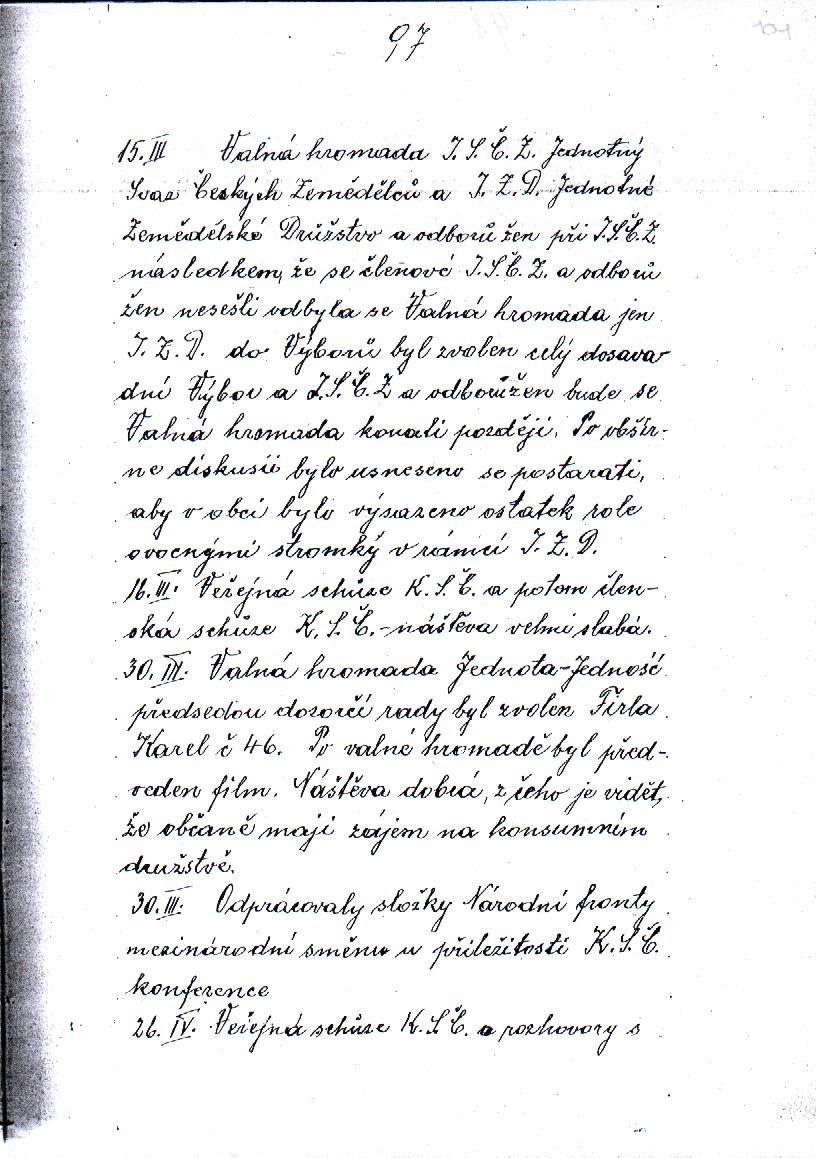 97
101
15. III Valná hromada J. S. Č. Z. Jednotný
Svaz Českých Zemědělců a J. Z. D. Jednotné
Zemědělské Družstvo a odborů žen při J.S.Č.Z.
následkem, že se členové J.S.Č.Z. a odborů
žen nesešli odbyla se Valná hromada jen
J. Z. D. do Výborů byl zvolen celý dosava-
dní Výbor a J.S.Č.Z a odborů žen bude se
Valná hromada konati později. Po obšír-
ne diskusii bylo usneseno se postarati,
aby v obci bylo výsazeno ostatek role
ovocnými stromký v rámci J. Z. D.
16. III. Veřejná schůze K. S. Č. a potom člen-
ská schůze K. S. Č. - náštěva velmi slabá.
30. III. Valná hromada Jednota-Jedność
předsedou dozorčí rady byl zvolen Firla
Karel č 46. Po valné hromadě byl před-
veden film. Náštěva dobrá, z čeho je vidět,
že občaně maji zájem na konsumním
družstvě.
30. III. Odprácovaly složky Národní fronty
mezinárodní směnu u přiležitosti K. S. Č.
konference
26. IV. Veřejná schůze K.S.Č. a rozhovory s